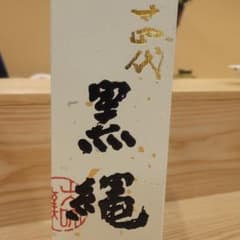 十四代
黒縄